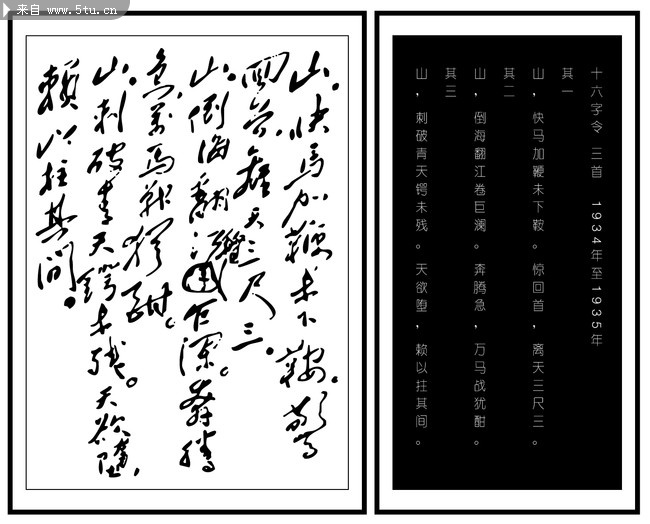 来自 www.5tu.cn
山。快馬加鞭未下鞍。驚
回首離天三尺三。
山。倒海翻江卷巨瀾。奔騰
急萬馬戰猶酣。
山。刺破青天鍔未殘。天欲墮,
賴以拄其間。
十六字令 三首 1934年至1935年
其一
山,快马加鞭未下鞍。惊回首,离天三尺三。
其二
山,倒海翻江卷巨澜。奔腾急,万马战犹酣。
其三
山,刺破青天锷未残。天欲堕,赖以拄其间。